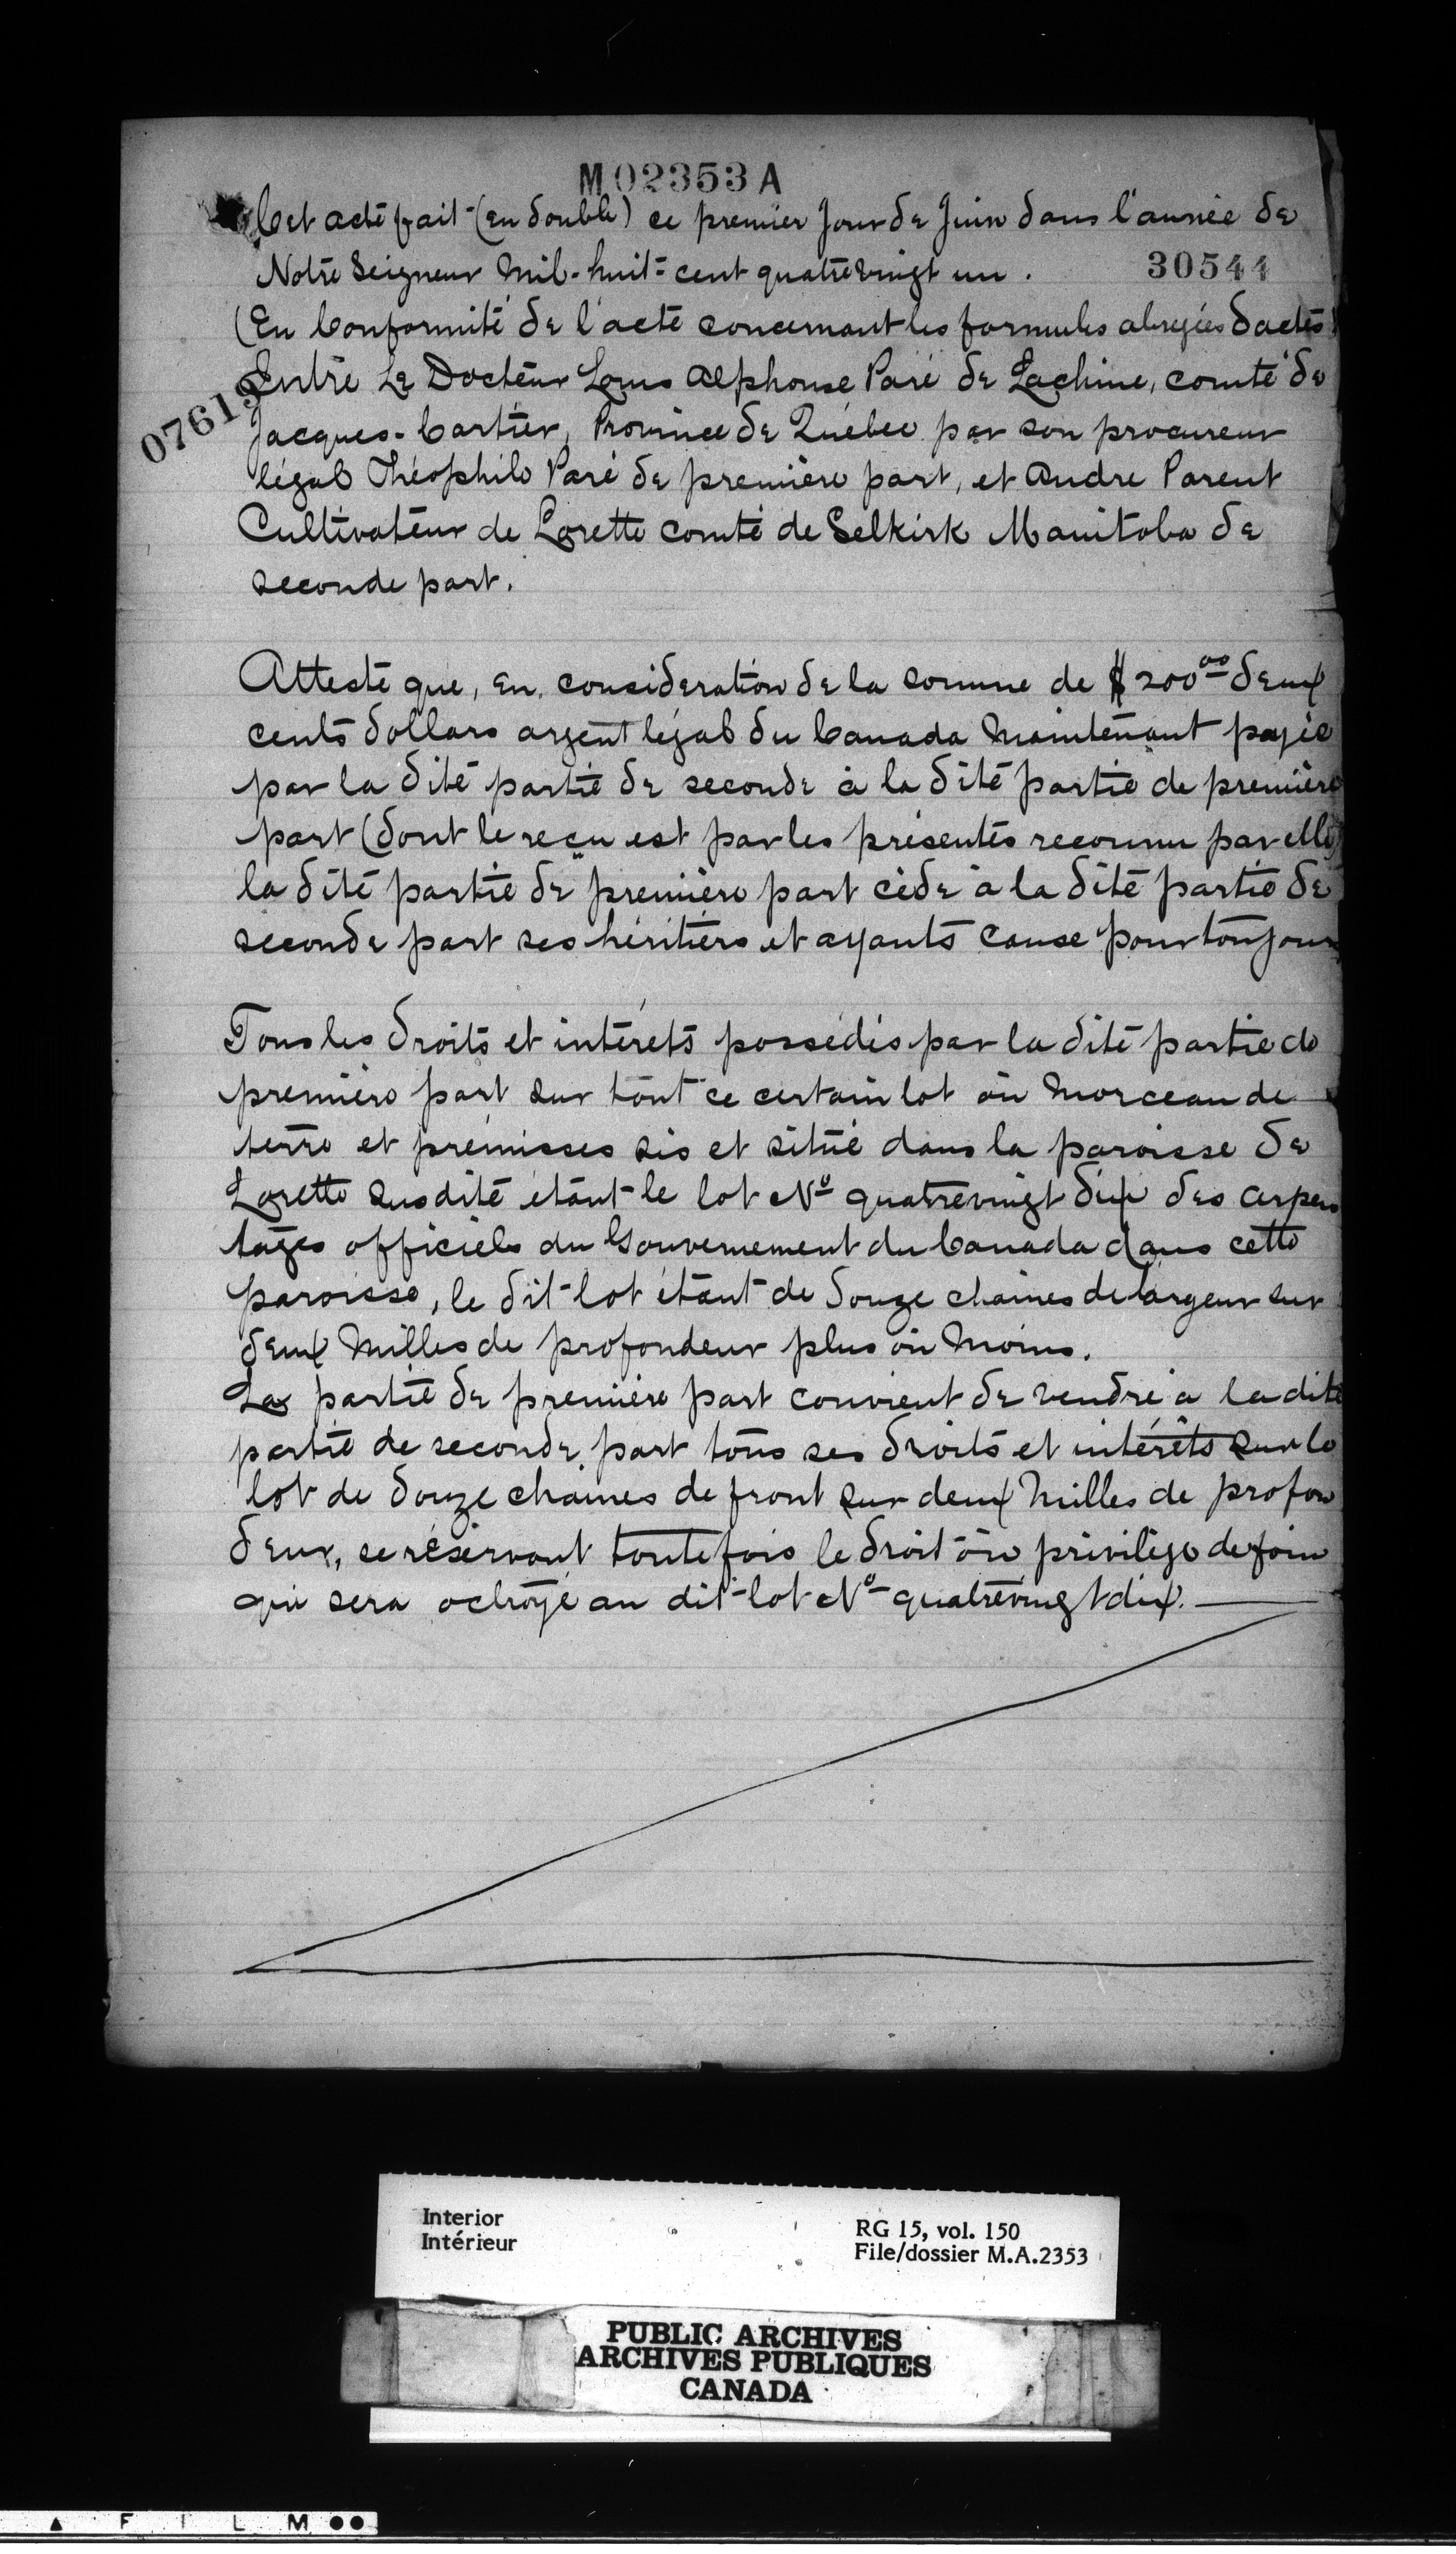 M 02353 A
Cet acte fait (en double) ce premier Jour de Juin dans l'année de
Notre Seigneur Mil-huit-cent quatrevingt un.
30544
(En Conformité de l'acte concernant les formules abregées d'actes)
Entre Le Docteur Louis Alphonse Paré de Lachine, comté de
07619
Jacques-Cartier, Province de Québec par son procureur
légal Théophile Paré de première part, et Andre Parent
Cultivateur de Lorette comté de Selkirk Manitoba de
seconde part.
Atteste que, en consideration de la somme de $200 00 deux
cents dollars argent légal du Canada maintenant payée
par la dite partie de seconde à la dite partie de première
part (dont le reçu est par les présentes reconnu par elle)
la dite partie de première part cède à la dite partie de
seconde part ses héritiers et ayants cause pour toujours
Tous les droits et intérets possédés par la dite partie de
première part sur tout ce certain lot ou morceau de
terre et prémisses sis et situé dans la paroisse de
Lorette susdite étant le lot No quatrevingt dix des arpen
tages officiels du Gouvernement du Canada dans cette
paroisse, le dit lot étant de douze chaines de largeur sur
deux Milles de profondeur plus ou moins.
La partie de première part convient de vendre à la dite
partie de seconde part tous ses droits et intérêts sur le
lot de douze chaines de front sur deux Milles de profon
deur, se réservant toutefois le droit ou privilège de foin
qui sera octroyé au dit lot No quatrevingt dix.
Interior
Intérieur
RG 15, vol. 150
File/dossier M.A.2353
PUBLIC ARCHIVES
ARCHIVES PUBLIQUES
CANADA
FILM